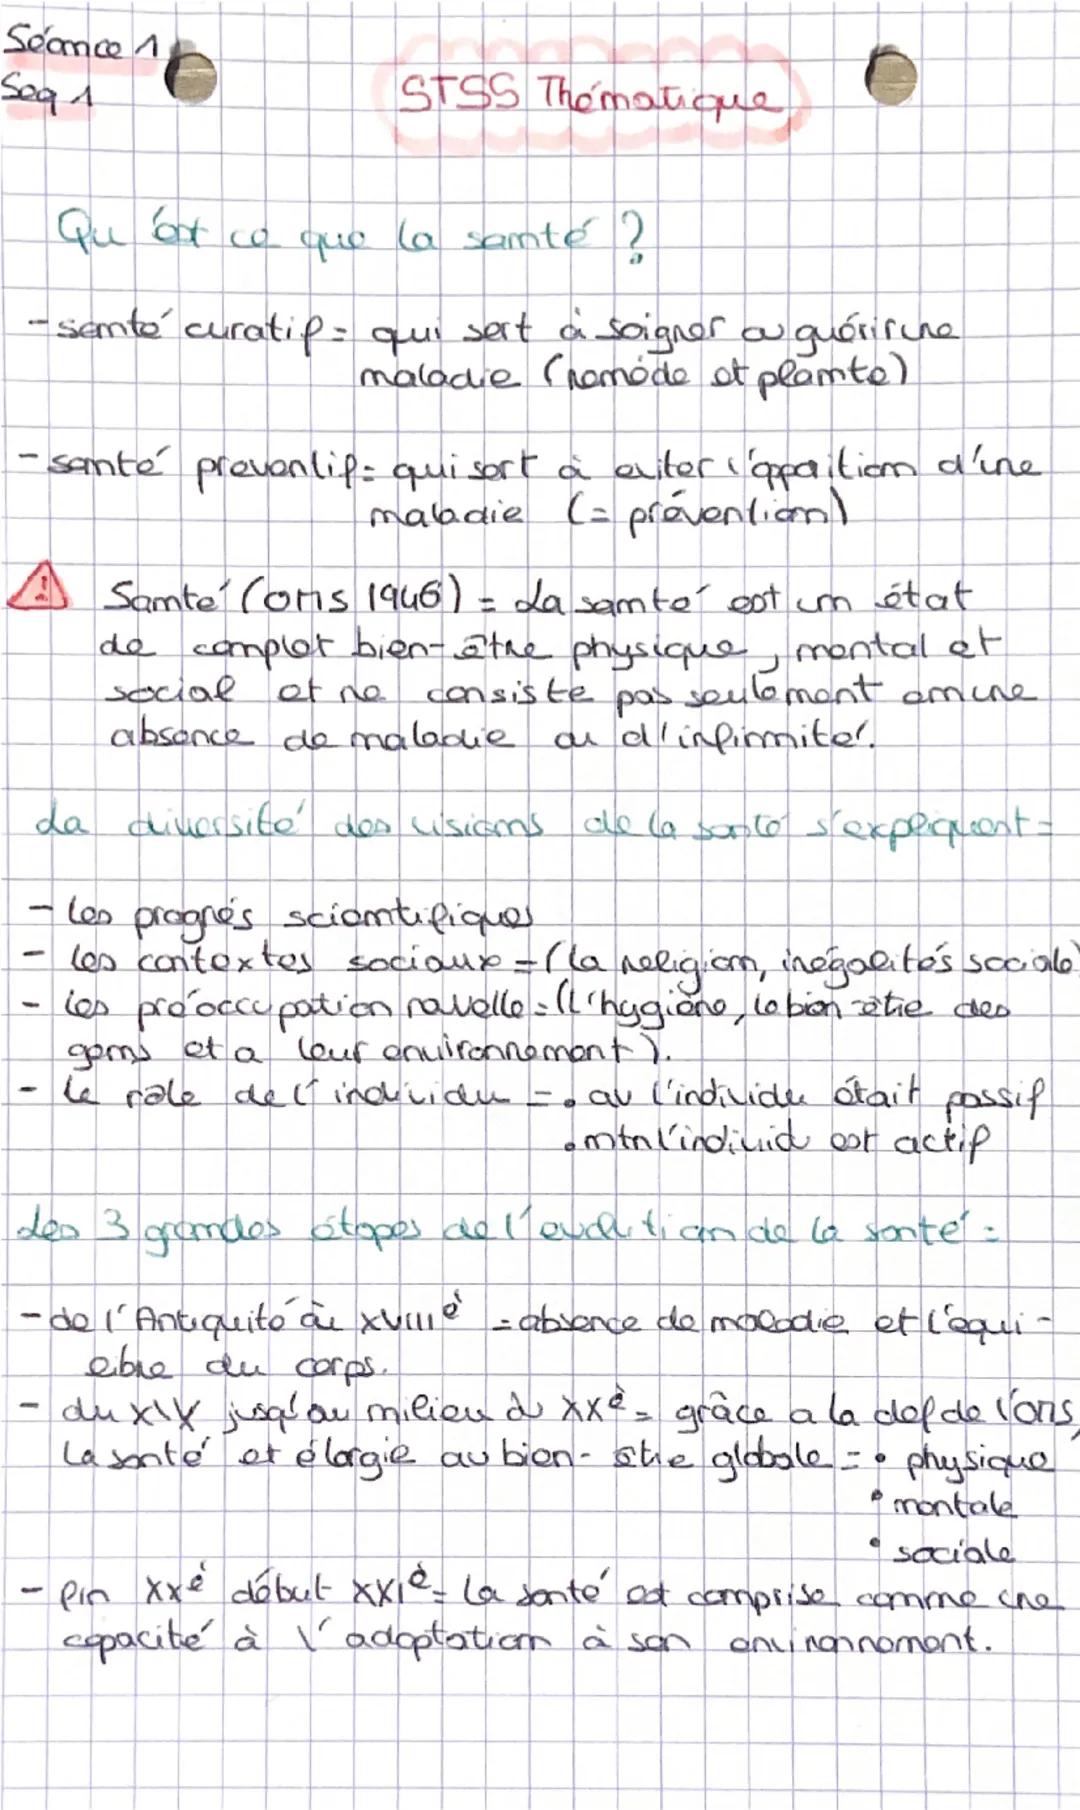 Séance 1
Seq 1
STSS Thématique
Qu'est ce que la santé ?
- santé curatif = qui sert à soigner ou guérir une
maladie (remède et plante)
- santé preventif = qui sert à eviter l'appaition d'une
maladie (= prévention)
Santé (OMS 1946) = La santé est un état
de complet bien-être physique, mental et
social et ne consiste pas seulement en une
absence de maladie ou d'infirmité.
La diversité des visions de la santé s'expliquent =
- les progrès scientifiques
- les contextes sociaux = (la religion, inégalités sociale)
- les préoccupation nouvelle = (l'hygiène, le bien-être des
gens et a leur environnement).
- Le rôle de l'individu = • av l'individu était passif
• mtn l'individ est actif
Les 3 grandes étapes de l'évolution de la santé =
- de l'Antiquité au XVIIIè = absence de maladie et l'équi-
libre du corps.
- du XIX jusqu'au milieu du XXè = grâce a la def de l'OMS,
La santé et élargie au bien-être globale = • physique
• mentale
• sociale
- fin XXè début XXIè = La santé est comprise comme une
capacité à l'adaptation à son environnement.